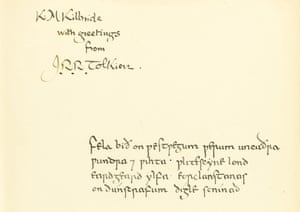 K.M Kilbride
with greetings
from
J.R.R. Tolkien.
fela bið on ƿestƿegum ƿerum uncuðra
ƿundra ⁊ ƿihta ƿlitescyne lond
eardgeard ylfa eorclanstanas
on dunscrafum digle scinað